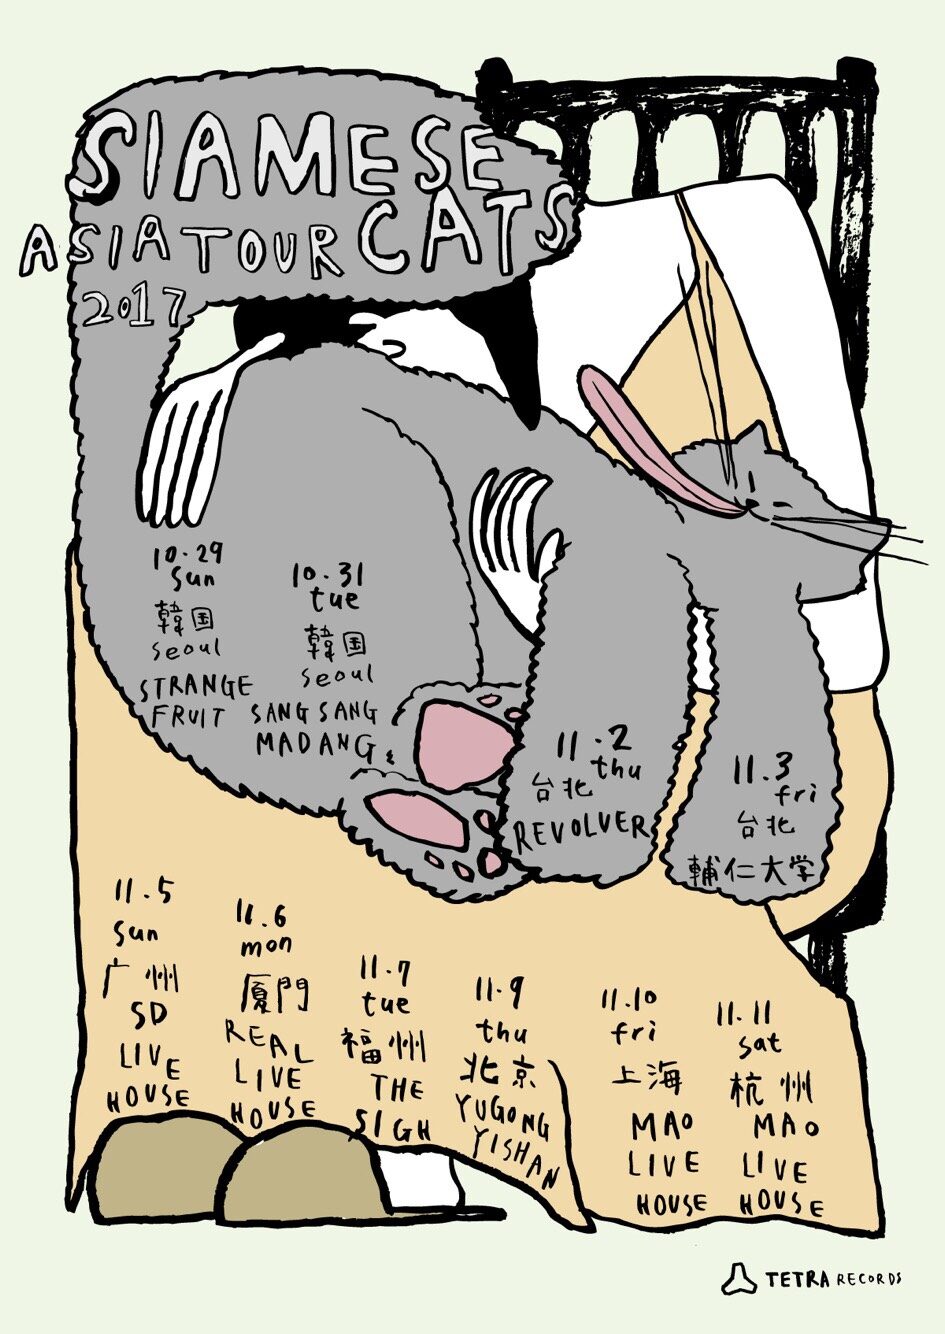 SIAMESE
CATS
ASIA TOUR
2017
10.29
sun
韓国
seoul
STRANGE
FRUIT
10.31
tue
韓国
seoul
SANG SANG
MADANG
11.2
thu
台北
REVOLVER
11.3
fri
台北
輔仁大学
11.5
sun
广州
SD
LIVE
HOUSE
11.6
mon
厦門
REAL
LIVE
HOUSE
11.7
tue
福州
THE
SIGH
11.9
thu
北京
YUGONG
YISHAN
11.10
fri
上海
MAO
LIVE
HOUSE
11.11
sat
杭州
MAO
LIVE
HOUSE
TETRA RECORDS